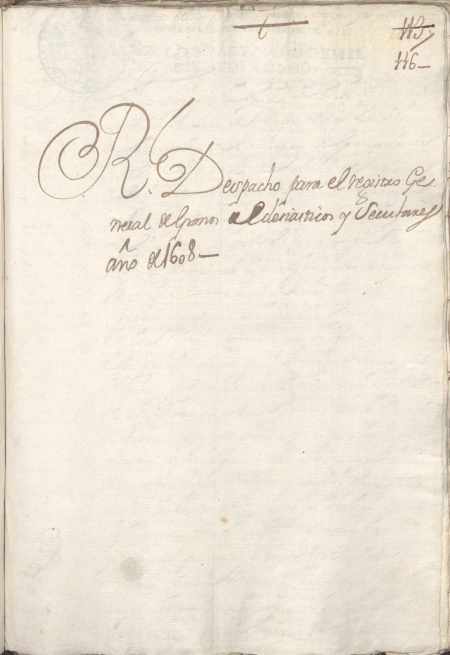 113
116—
R. Despacho para el registro Ge
neral de granos eclesiasticos y Seculares
año de 1608—